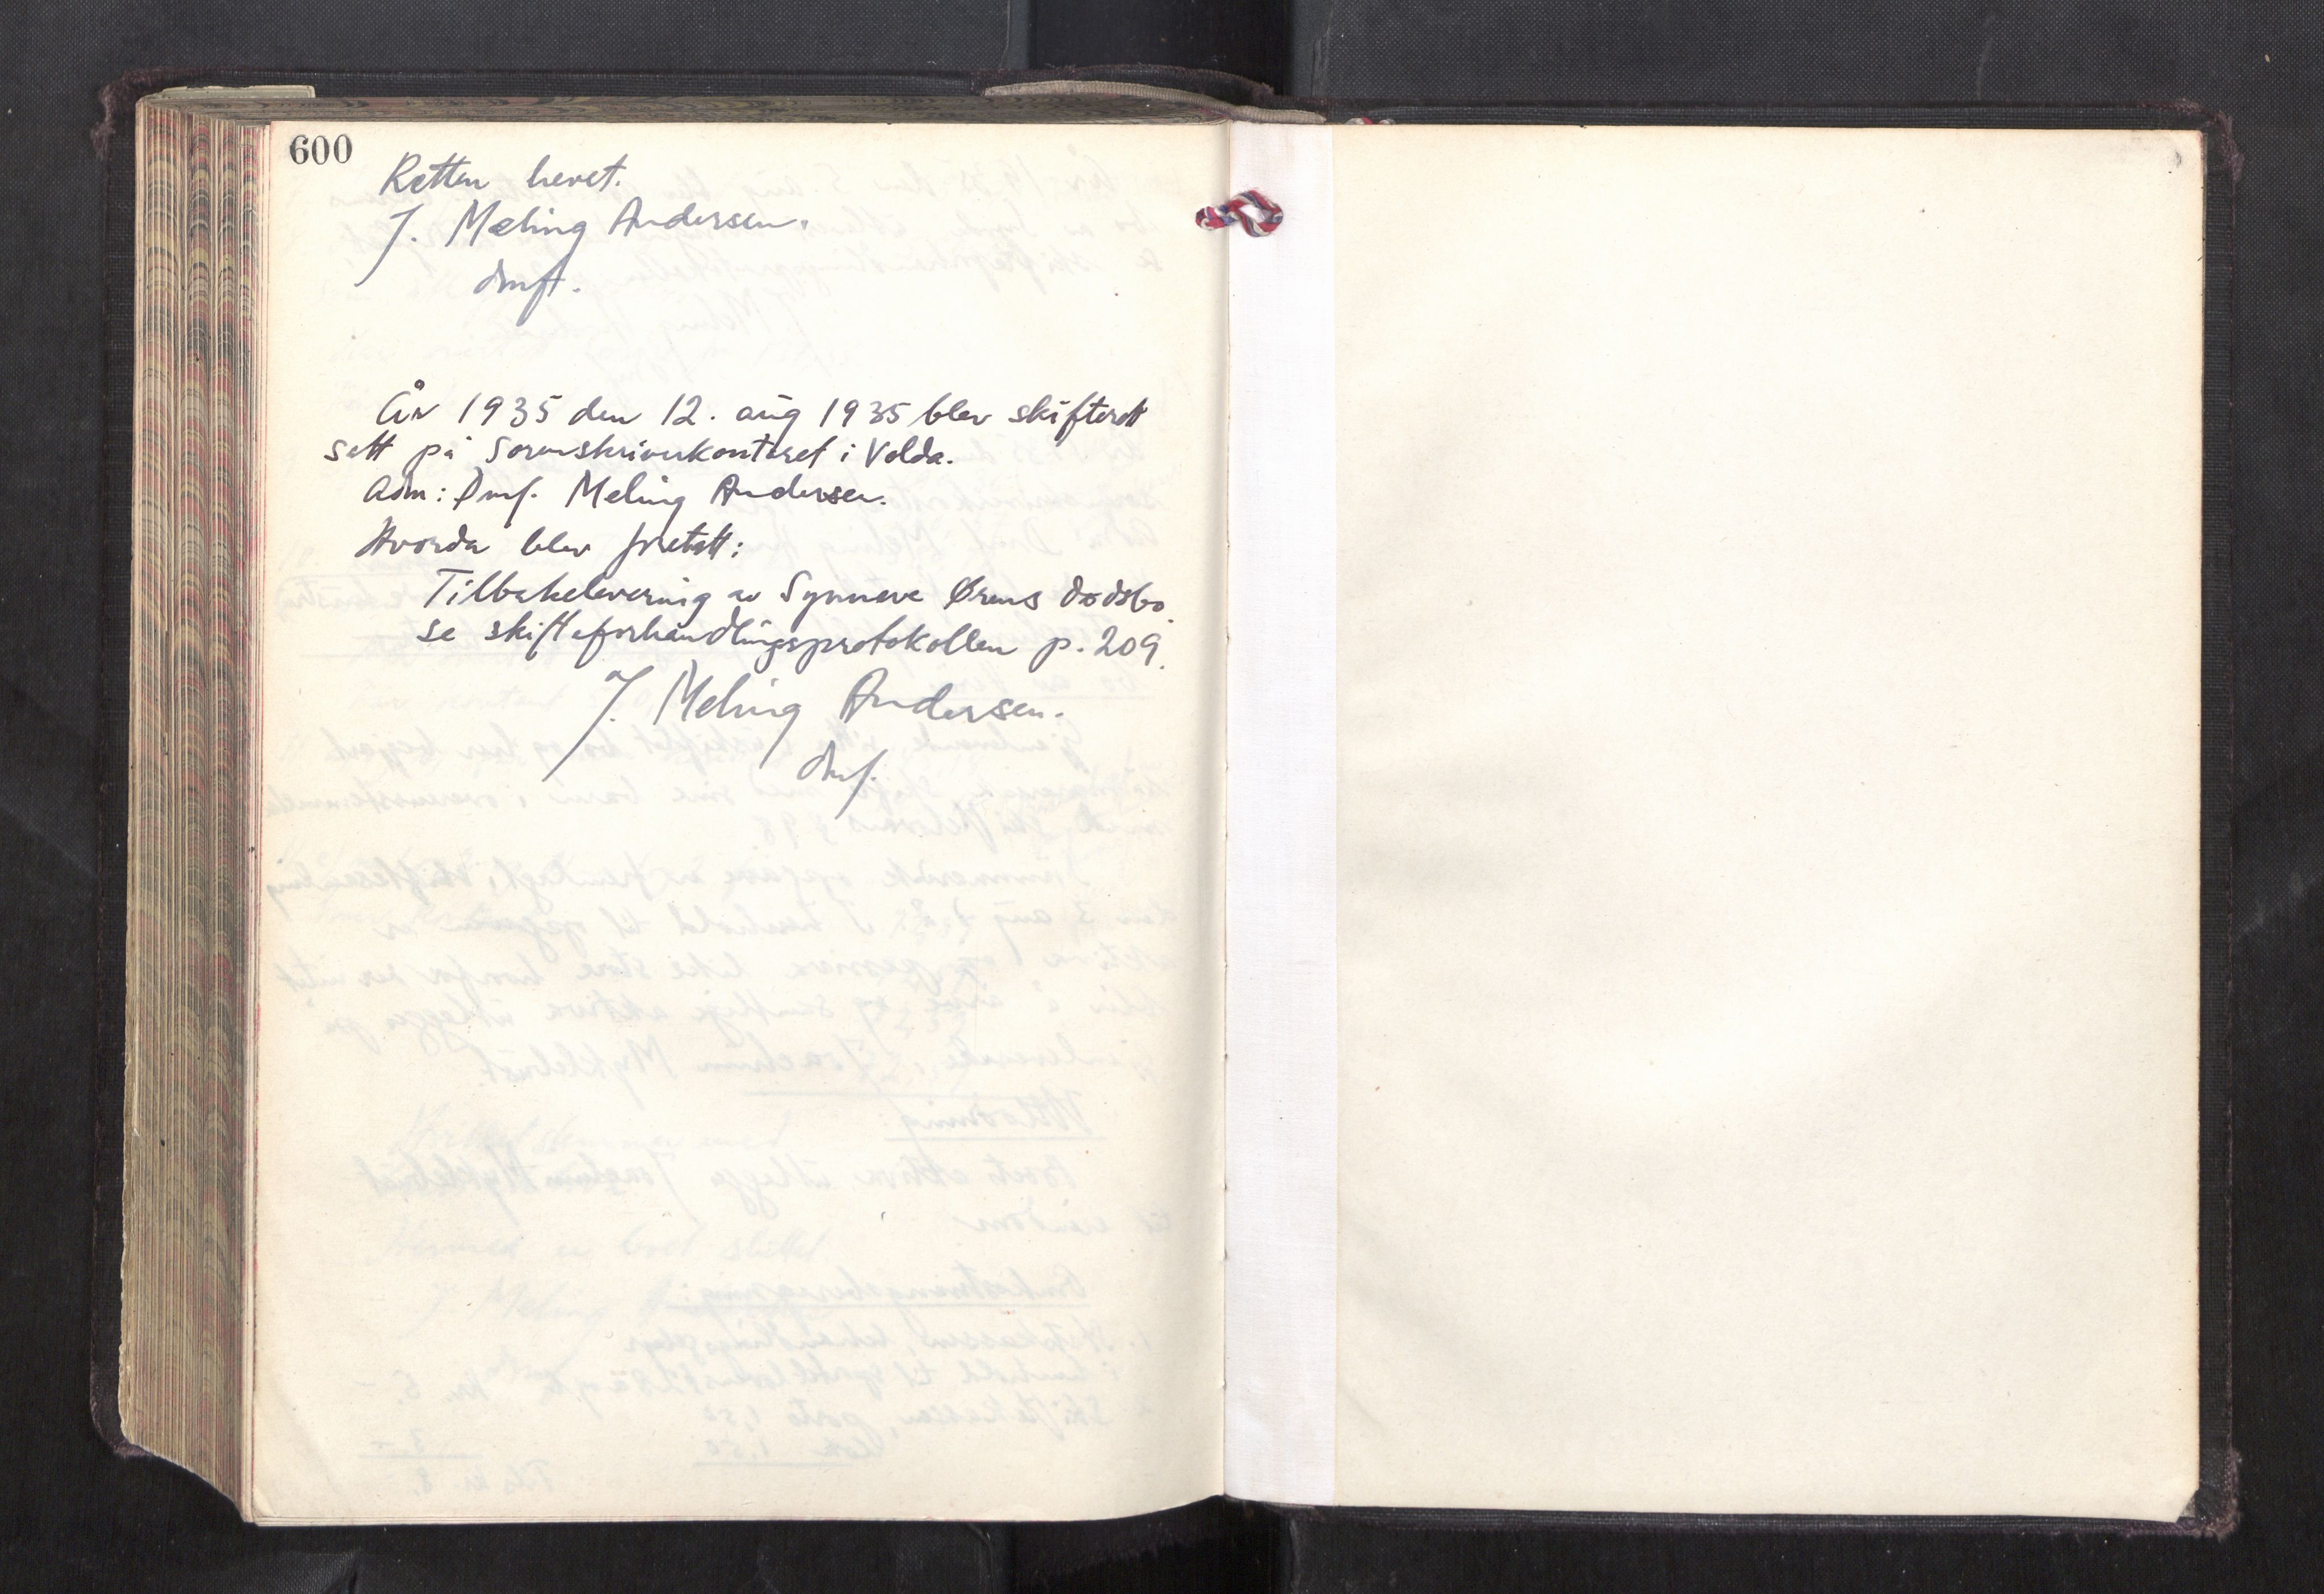 600
Retten hevet.
J. Meling Andersen.
dmft.
År 1935 den 12. aug 1935 blev skifterett
satt på Sorenskriverkontoret i Volda.
Adm: Dmf. Meling Andersen.
Hvorda blev foretatt:
Tilbakelevering av Synneve Ørens dødsbo
se skifteforhandlingsprotokollen p. 209.
J. Meling Andersen.
dmf.